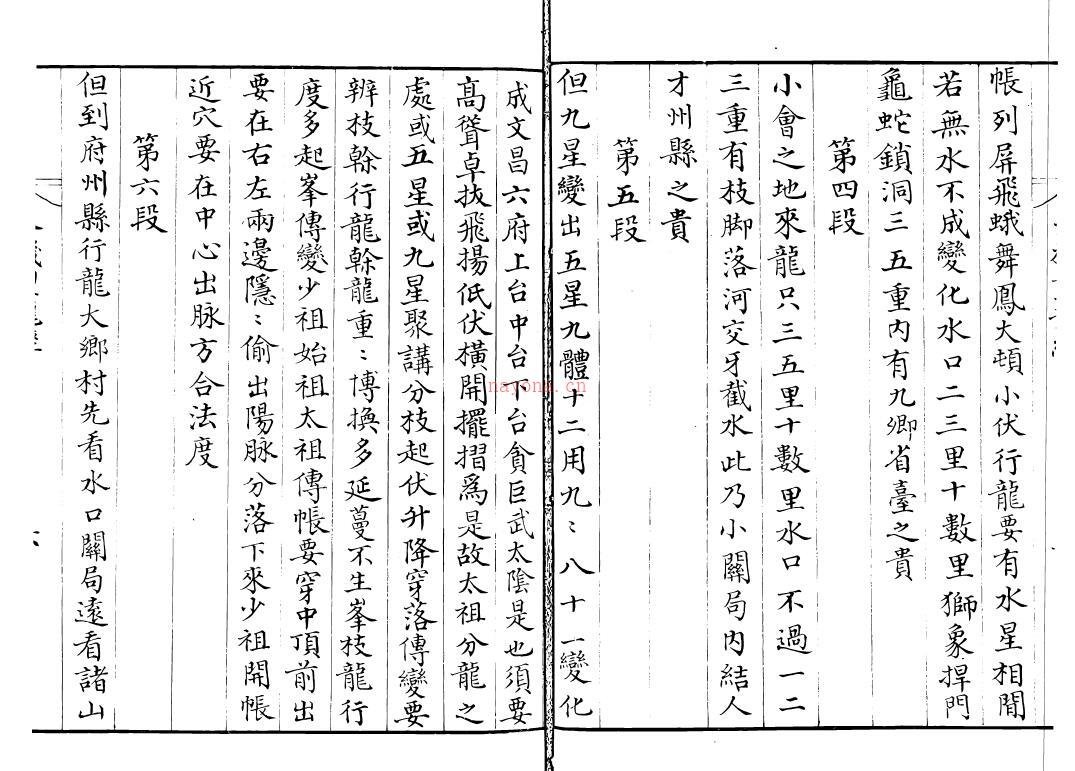 帳列屏飛蛾舞鳳大頓小伏行龍要有水星相間
若無水不成變化水口二三里十數里獅象捍門
龜蛇鎖洞三五重內有九卿省臺之貴
第四段
小會之地來龍只三五里十數里水口不過一二
三重有枝脚落河交牙截水此乃小關局內結人
才州縣之貴
第五段
但九星變出五星九體十二用九〻八十一變化
成文昌六府上台中台下台貪巨武太陰是也須要
高聳卓拔飛揚低伏橫開擺摺爲是故太祖分龍之
處或五星或九星聚講分枝起伏升降穿落傳變要
辨枝幹行龍幹龍重〻博換多延蔓不生峯枝龍行
度多起峯傳變少祖始祖太祖傳帳要穿中頂前出
要在右左兩邊隱〻偷出陽脉分落下來少祖開帳
近穴要在中心出脉方合法度
第六段
但到府州縣行龍大鄉村先看水口關局遠看諸山
nayona.cn